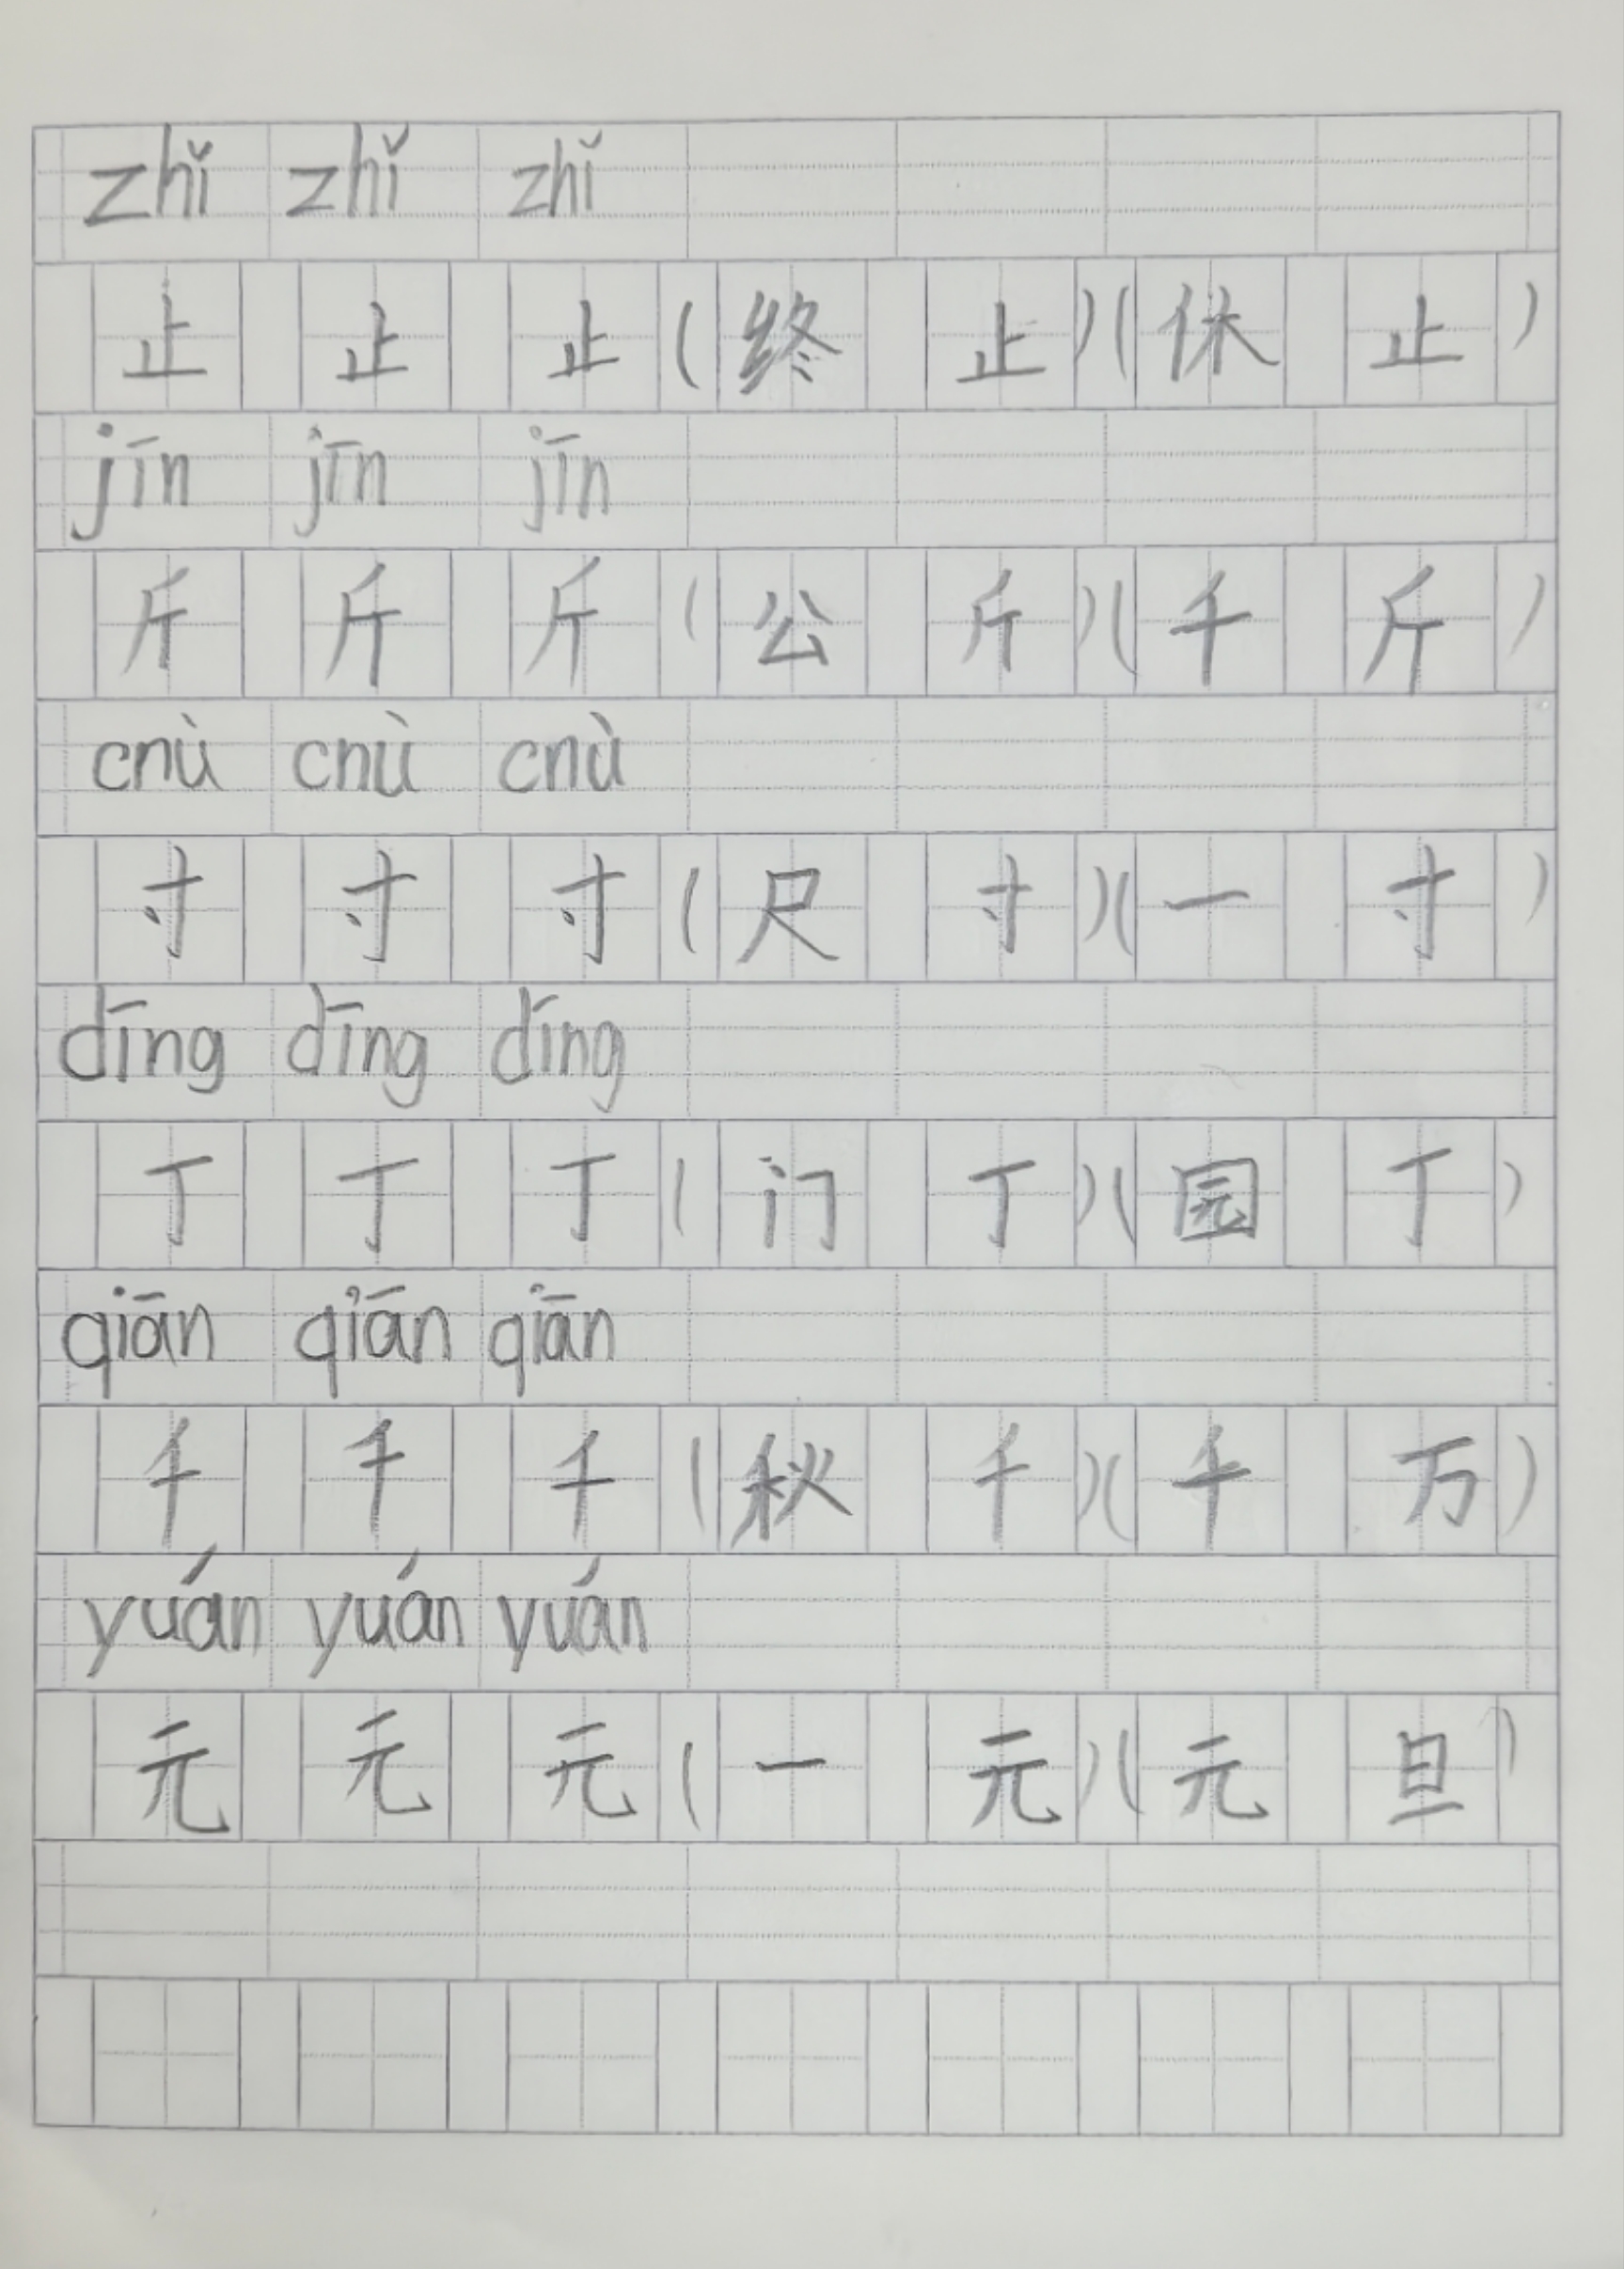 zhǐ zhǐ zhǐ
止 止 止 (终 止)(休 止)
jīn jīn jīn
斤 斤 斤 (公 斤)(千 斤)
cnù cnù cnù
寸 寸 寸 (尺 寸)(一 寸)
dīng dīng dīng
丁 丁 丁 (门 丁)(园 丁)
qiān qiān qiān
千 千 千 (秋 千)(千 万)
yuán yuán yuán
元 元 元 (一 元)(元 旦)